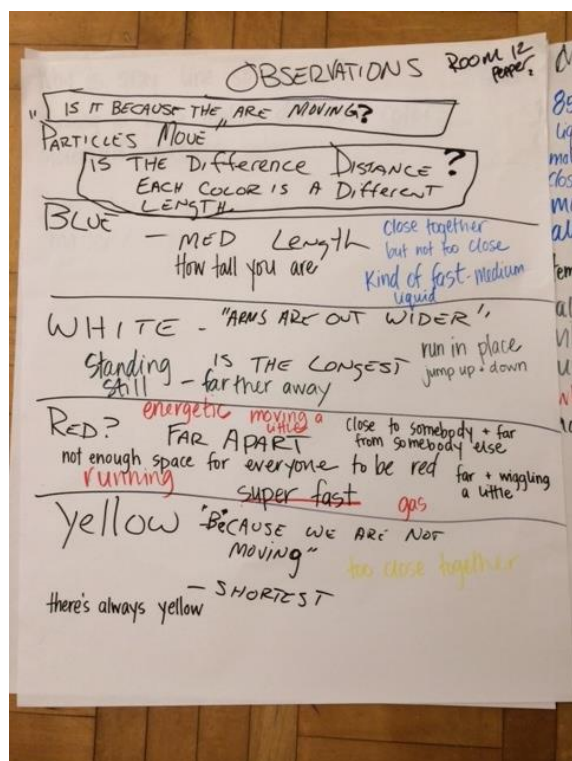 OBSERVATIONS
ROOM 12
PEPPER
"IS IT BECAUSE THE ARE MOVING?"
PARTICLES MOVE
IS THE DIFFERENCE DISTANCE?
EACH COLOR IS A DIFFERENT
LENGTH.
BLUE
- MED LENGTH
How tall you are
Close together
but not too close
Kind of fast-medium
liquid
WHITE - "ARMS ARE OUT WIDER"
Standing
still
IS THE LONGEST
- farther away
run in place
jump up + down
RED?
energetic
moving a
little
FAR APART
close to somebody + far
from somebody else
not enough space for everyone to be red
far + wiggling
a little
running
super fast
gas
yellow
"BECAUSE WE ARE NOT
MOVING"
too close together
- SHORTEST
there's always yellow
85
liq